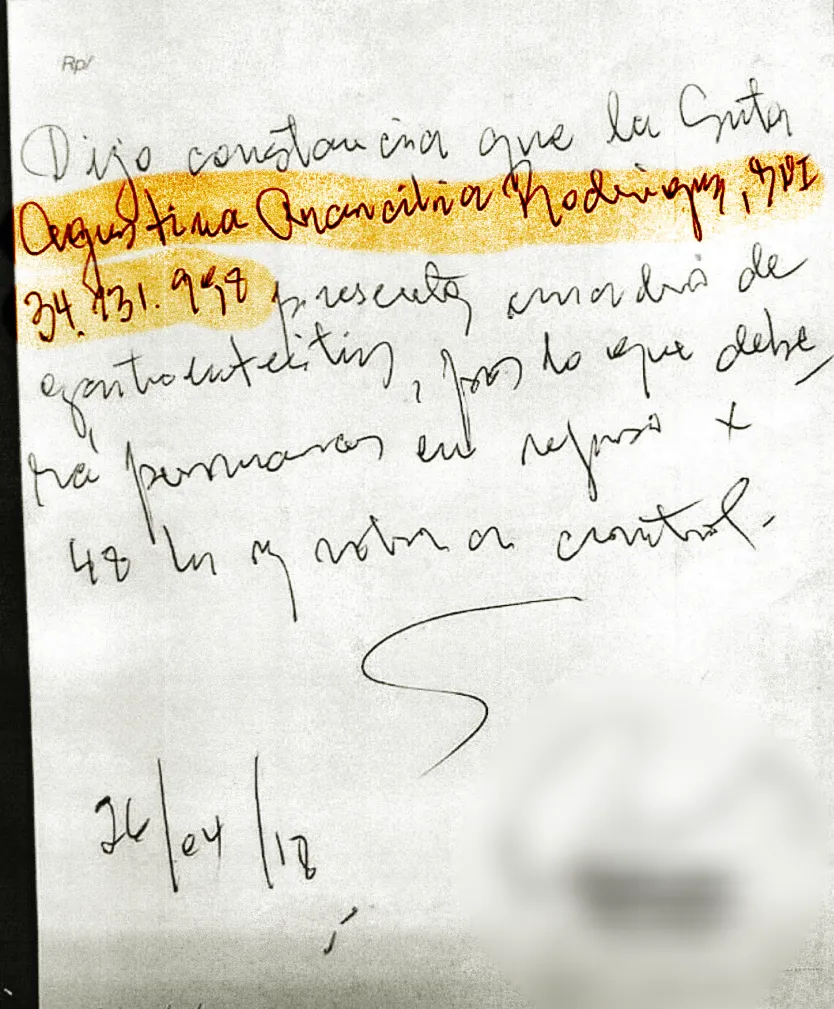 Rp/
Dejo constancia que la Srita
Agustina Arancibia Rodriguez, DNI
34.131.958 presenta cuadro de
gastroenteritis, por lo que debe
rá permanecer en reposo x
48 hs y volver a control.
26/04/18